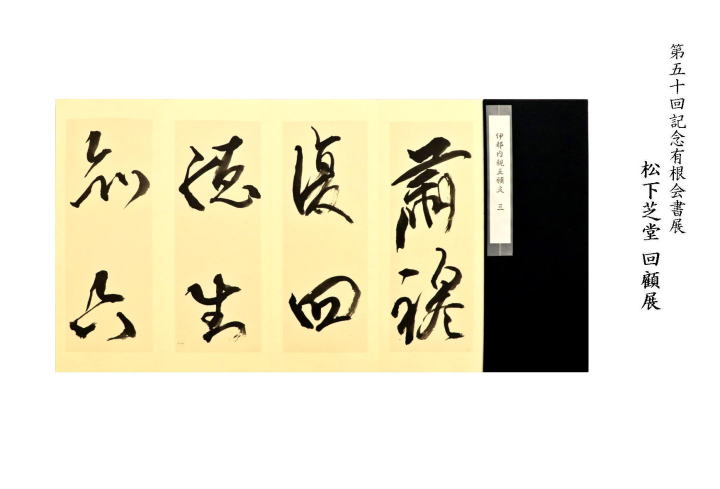 第五十回記念有根会書展
松下芝堂 回顧展
伊都内親王願文 三
復四
徳生